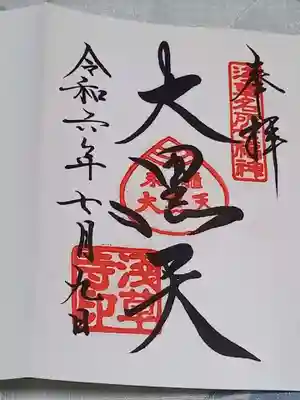 奉拝
浅草名所七福神
大黒天
令和六年七月九日
浅草
寺印